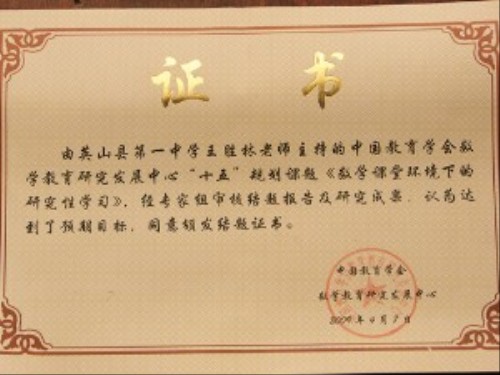 证 书
由英山县第一中学王胜林老师主持的中国教育学会数
学教育研究发展中心“十五”规划课题《数学课堂环境下的
研究性学习》，经专家组审核结题报告及研究成果，认为达
到了预期目标，同意颁发结题证书。
中国教育学会
数学教育研究发展中心
年4月7日